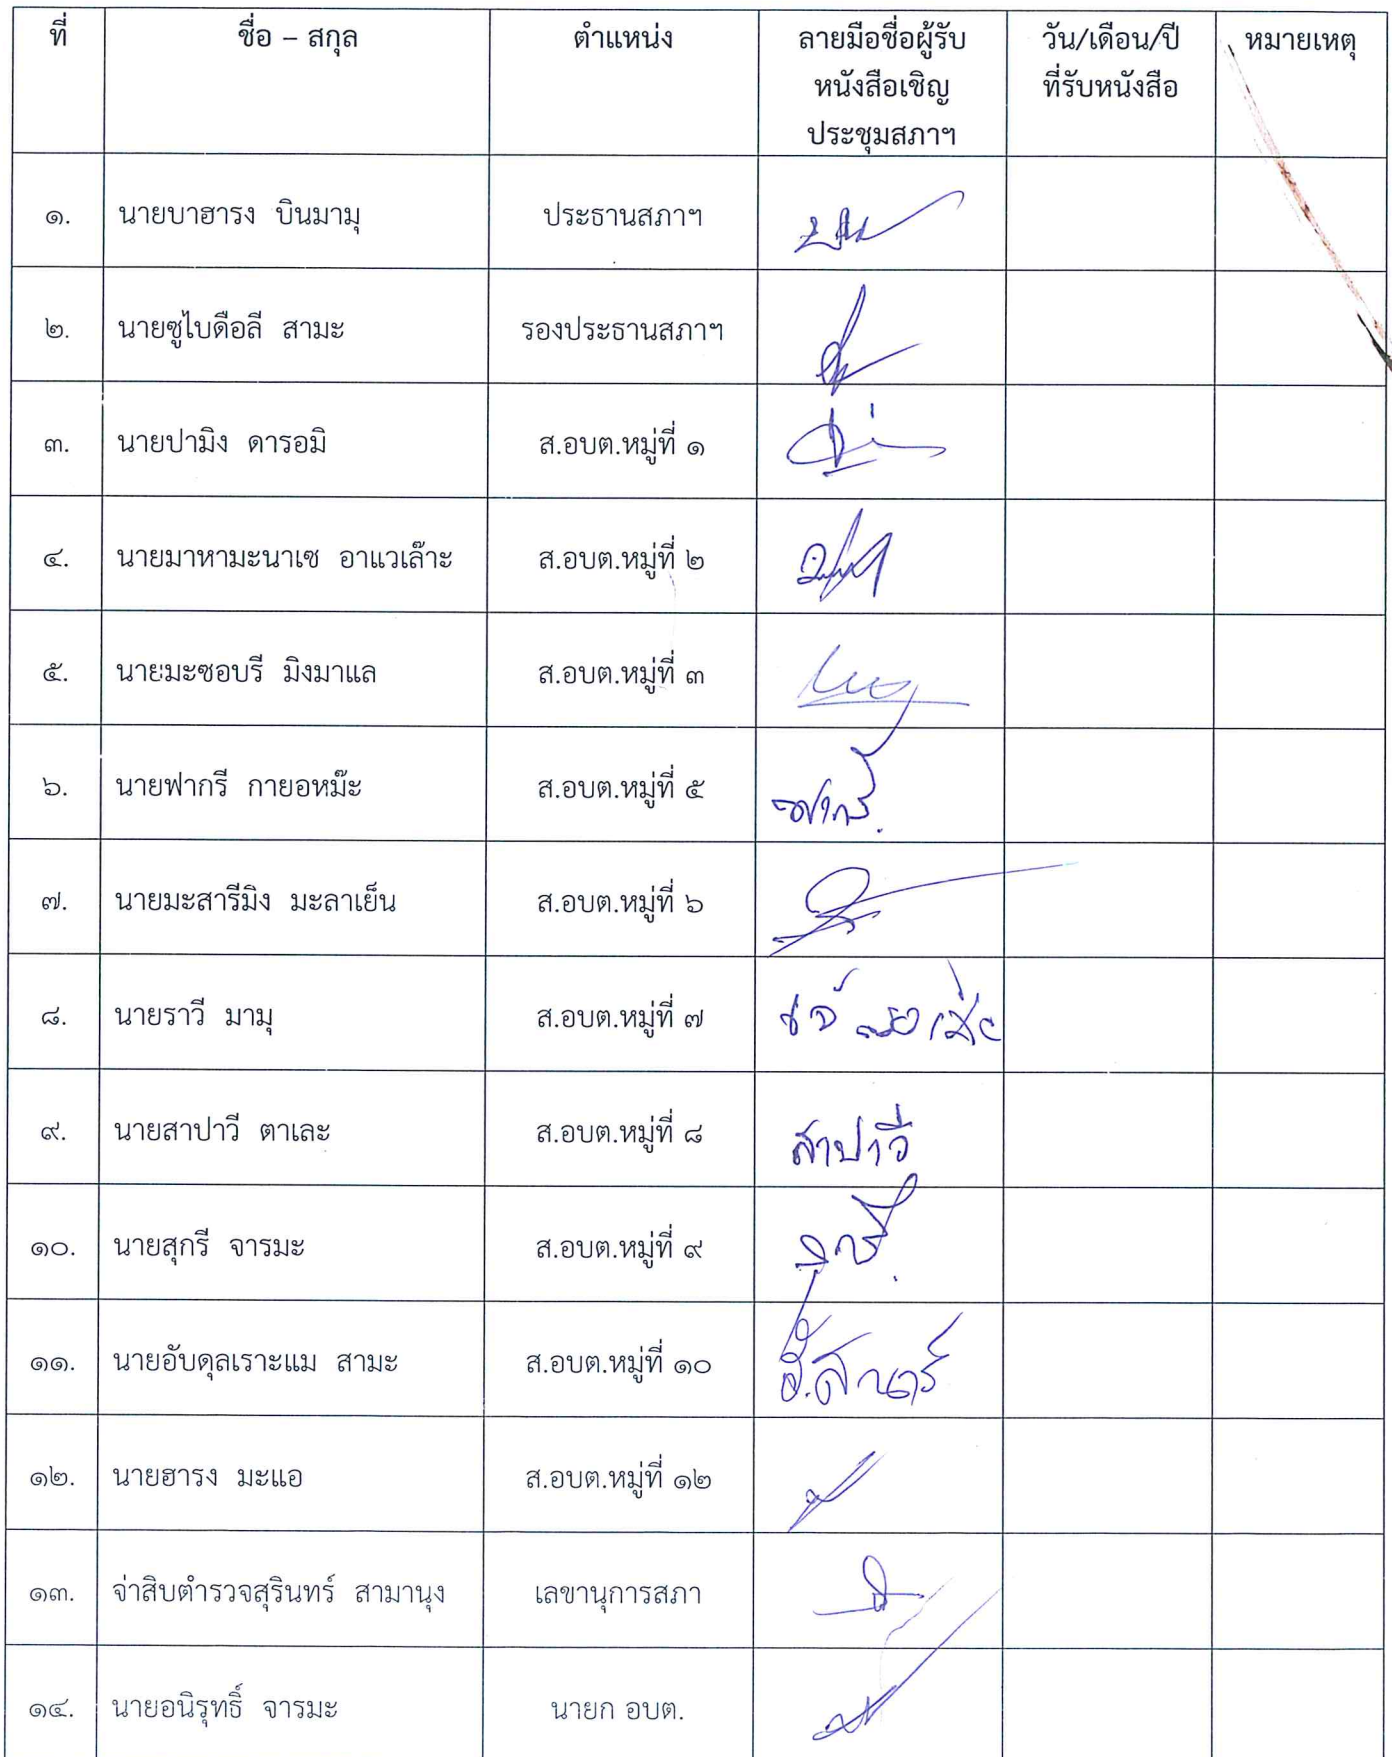 ที่ ชื่อ – สกุล ตำแหน่ง ลายมือชื่อผู้รับ วัน/เดือน/ปี หมายเหตุ
หนังสือเชิญ ที่รับหนังสือ
ประชุมสภาฯ
๑. นายบาฮารง บินมามุ ประธานสภาฯ
๒. นายซูไบดือลี สามะ รองประธานสภาฯ
๓. นายปามิง ดารอมิ ส.อบต.หมู่ที่ ๑
๔. นายมาหามะนาเซ อาแวเล๊าะ ส.อบต.หมู่ที่ ๒
๕. นายมะซอบรี มิงมาแล ส.อบต.หมู่ที่ ๓
๖. นายฟากรี กายอหม๊ะ ส.อบต.หมู่ที่ ๕ ฟากรี
๗. นายมะสารีมิง มะลาเย็น ส.อบต.หมู่ที่ ๖
๘. นายราวี มามุ ส.อบต.หมู่ที่ ๗
๙. นายสาปาวี ตาเละ ส.อบต.หมู่ที่ ๘ สาปาวี
๑๐. นายสุกรี จารมะ ส.อบต.หมู่ที่ ๙
๑๑. นายอับดุลเราะแม สามะ ส.อบต.หมู่ที่ ๑๐
๑๒. นายฮารง มะแอ ส.อบต.หมู่ที่ ๑๒
๑๓. จ่าสิบตำรวจสุรินทร์ สามานุง เลขานุการสภา
๑๔. นายอนิรุทธิ์ จารมะ นายก อบต.